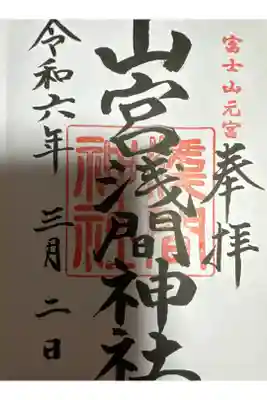 富士山元宮
奉拝
山宮浅間神社
令和六年 三月 二日